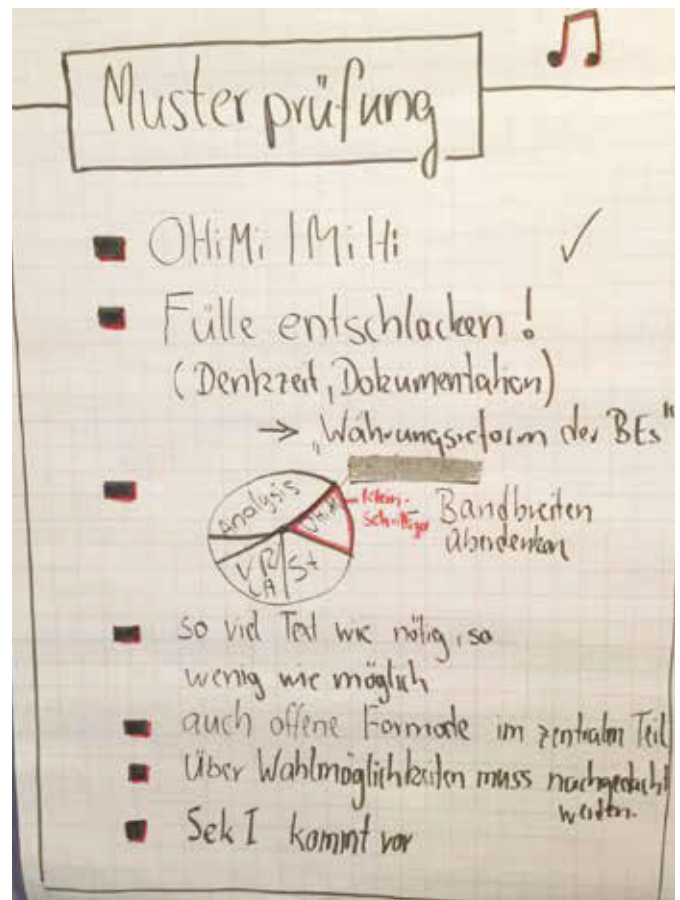 Musterprüfung
OHiMi / MiHi
Fülle entschlacken!
(Denkzeit, Dokumentation)
→ „Währungsreform der BEs"
Analysis
OHiMi
VR
LA
St
Klein-
schrittiger
Bandbreiten
überdenken
so viel Text wie nötig, so
wenig wie möglich
auch offene Formate im zentralen Teil
Über Wahlmöglichkeiten muss nachgedacht
werden.
Sek I kommt vor